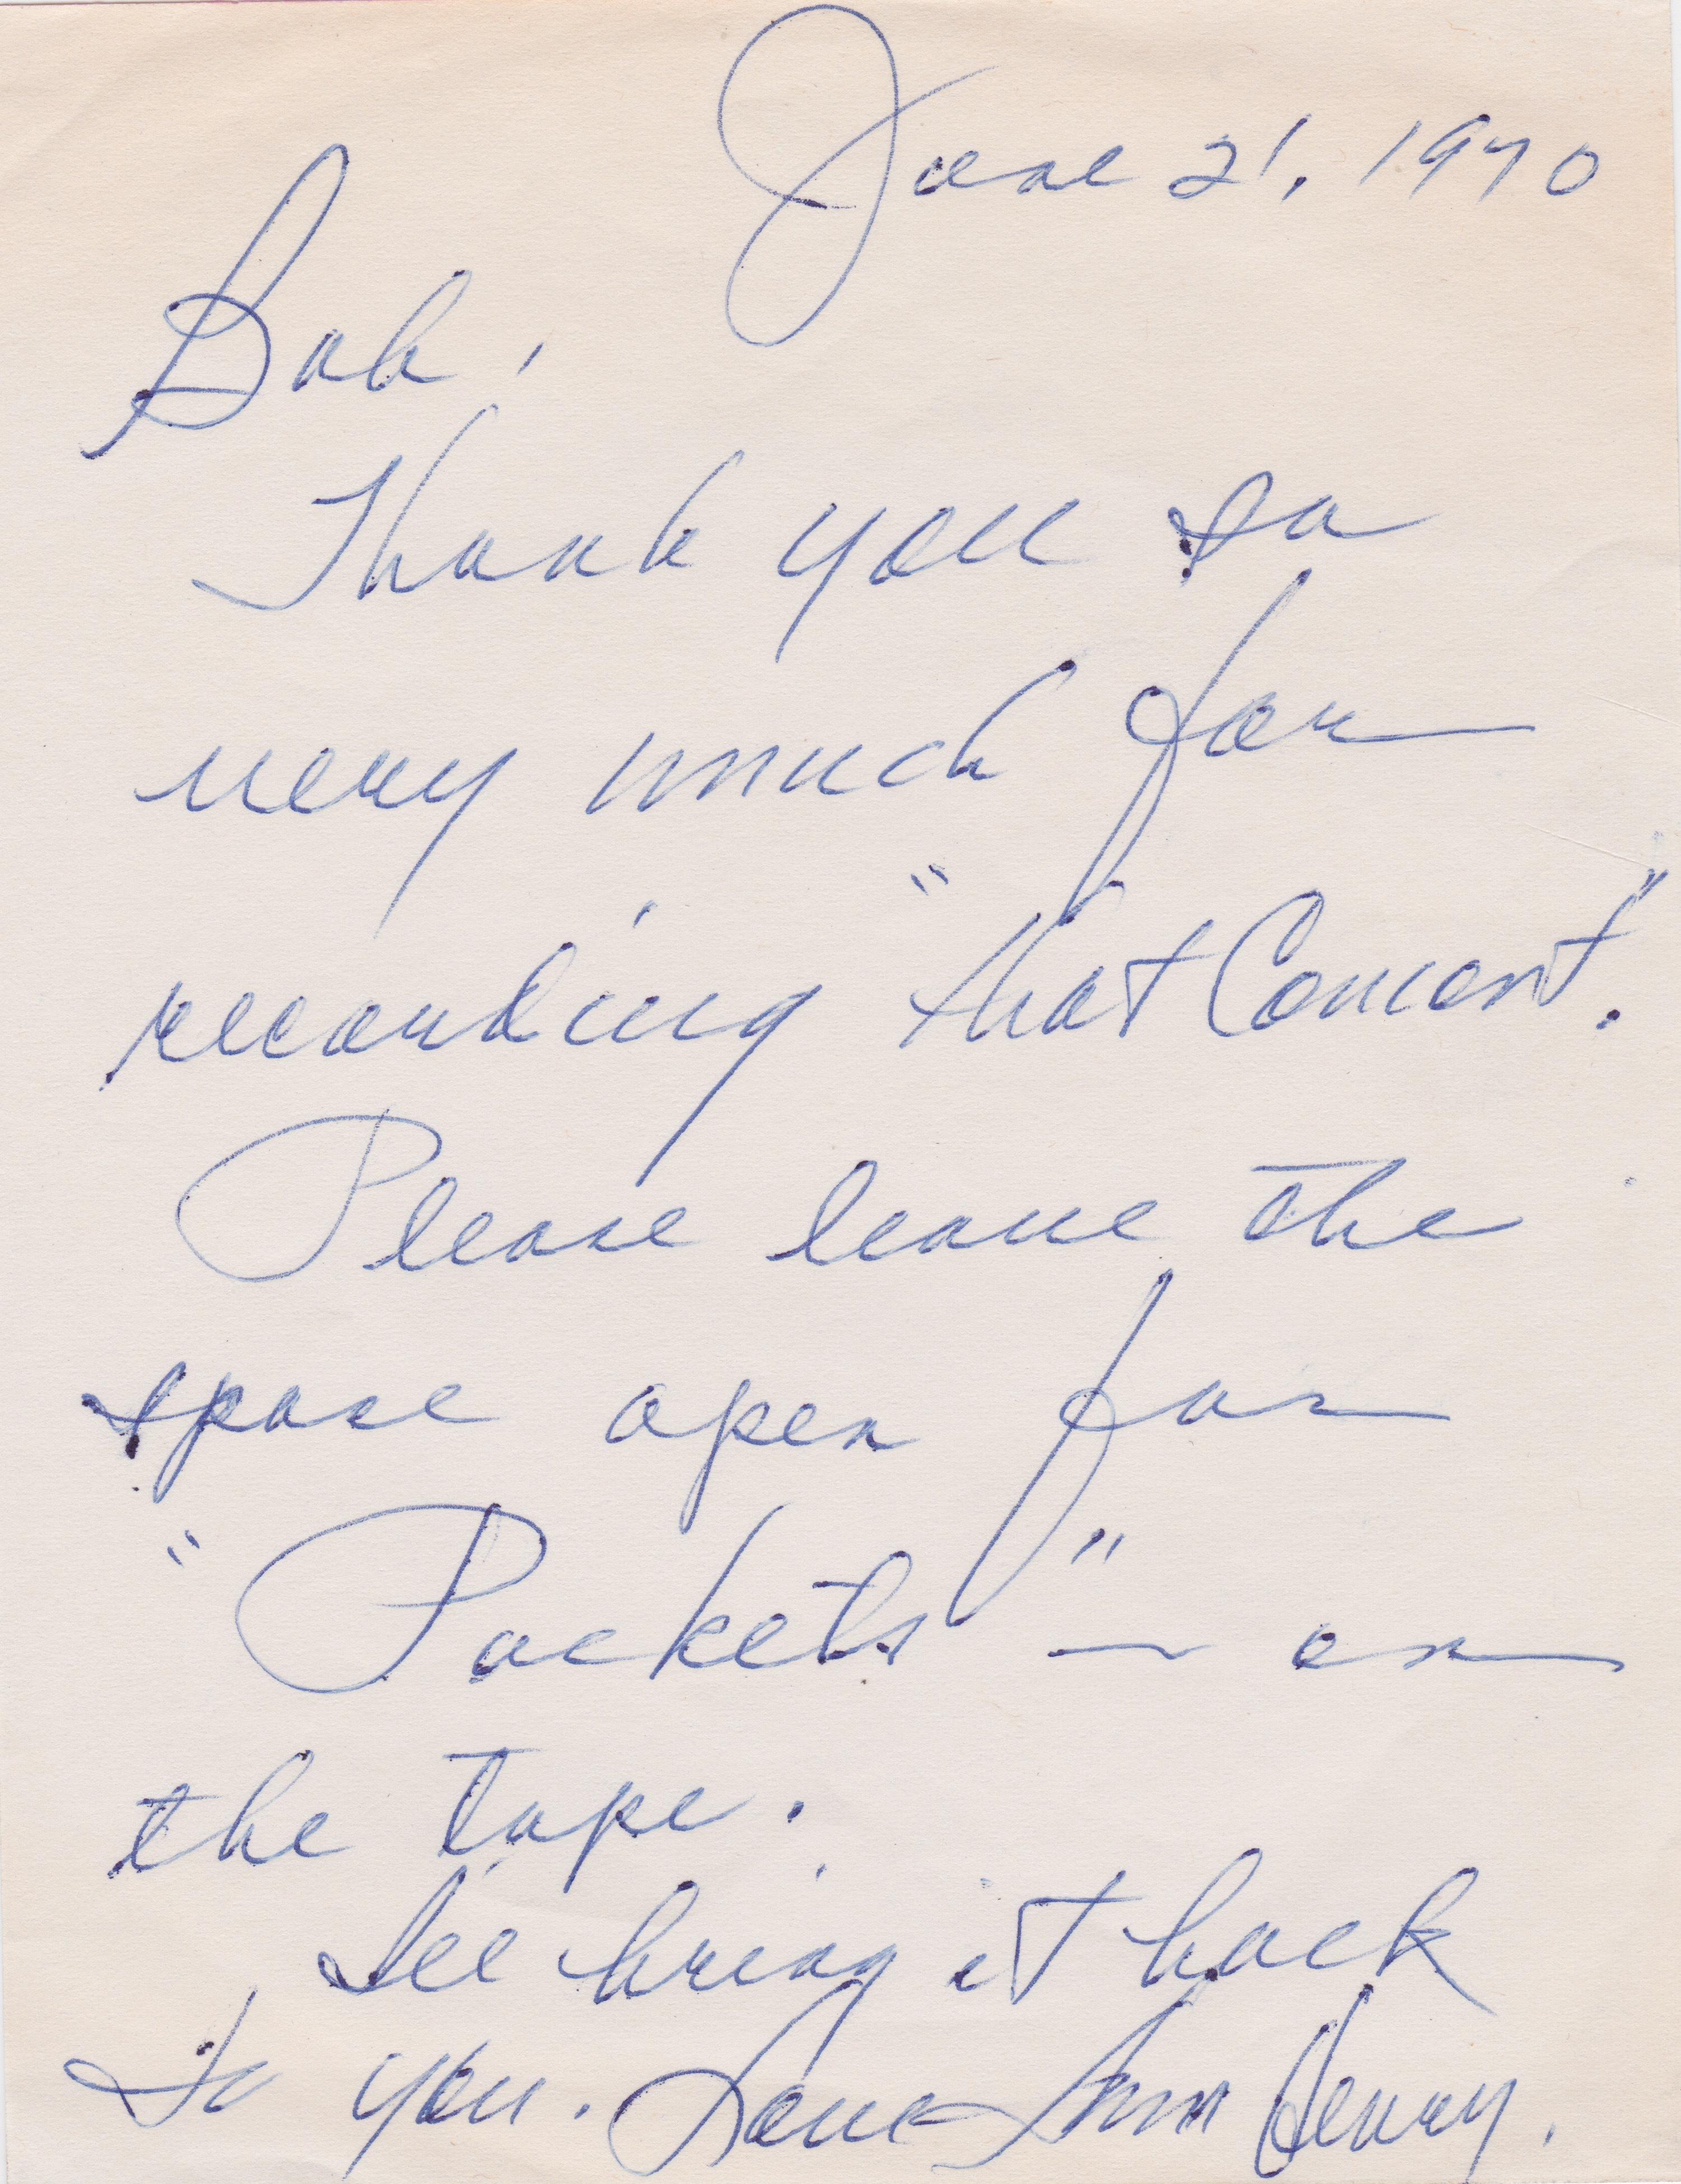 June 21, 1970
Bob,
Thank you so
very much for
recording "that Concert."
Please leave the
space open for
"Pockets" — on
the tape.
I'll bring it back
to you. Love Ann Henry.